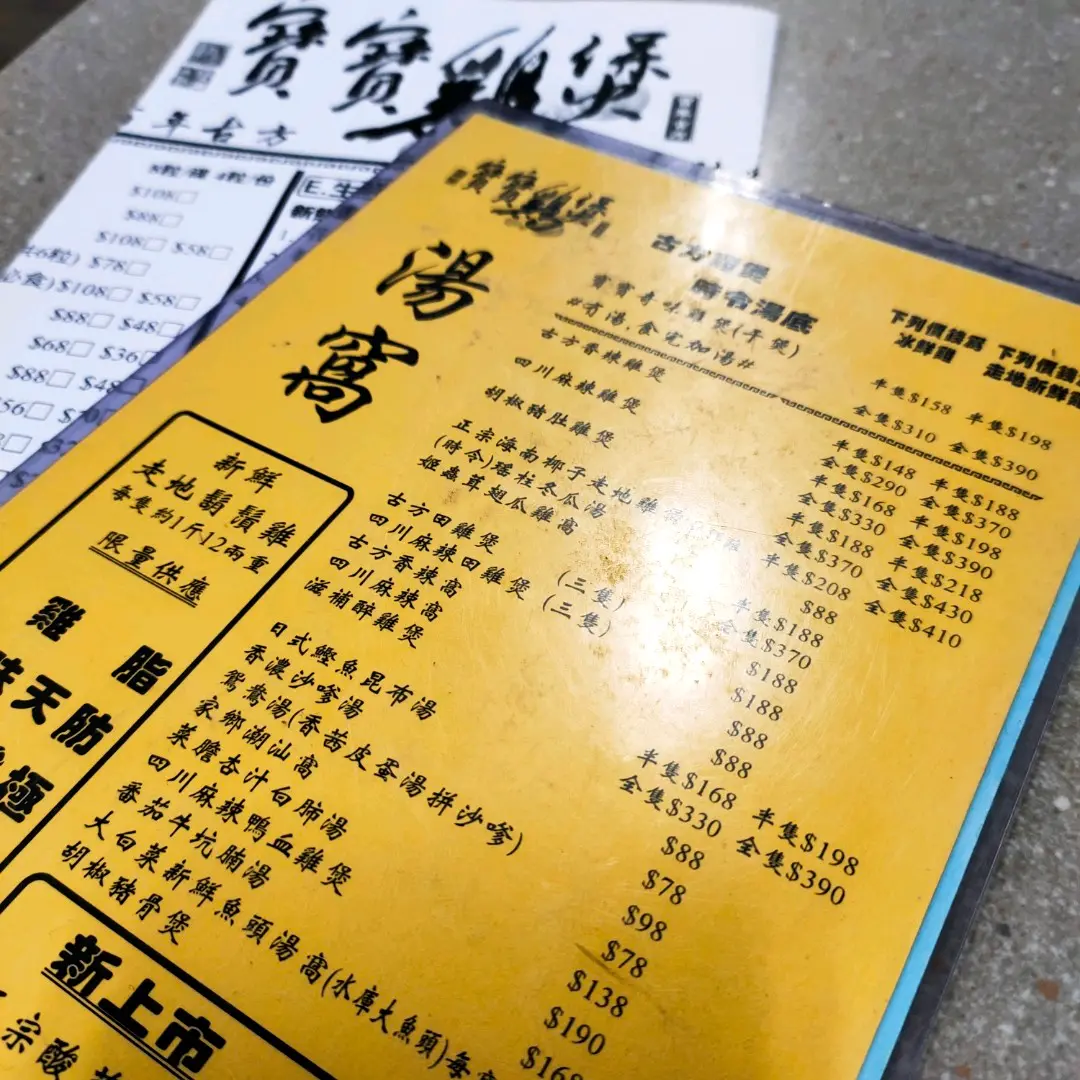 寶寶雞煲
年古方
$108□
$88□
$108□ $58□
共6粒) $78□
必食) $108□ $58□
$88□ $48□
$68□ $36□
$88□ $48
$56□
E.生
寶寶雞煲
湯窩
古方雞煲
時令湯底
下列價錢為
冰鮮雞
下列價錢
走地新鮮
寶寶尋味雞煲(干煲)
#冇湯,食完加湯#
半隻$158 半隻$198
全隻$310 全隻$390
古方香辣雞煲
半隻$148 半隻$188
全隻$290 全隻$370
四川麻辣雞煲
半隻$168 半隻$198
全隻$330 全隻$390
胡椒豬肚雞煲
半隻$188 半隻$218
全隻$370 全隻$430
正宗海南椰子走地雞
半隻$208 全隻$410
(時令)瑤柱冬瓜湯
$88
姬蟲茸翅瓜雞窩
半隻$188
全隻$370
古方田雞煲 (三隻)
$188
四川麻辣田雞煲 (三隻)
$188
古方香辣窩
$88
四川麻辣窩
$88
滋補醉雞煲
半隻$168 半隻$198
全隻$330 全隻$390
日式鰹魚昆布湯
$88
香濃沙嗲湯
$78
鴛鴦湯(香茜皮蛋湯拼沙嗲)
$98
家鄉潮汕窩
$78
菜膽杏汁白肺湯
$138
四川麻辣鴨血雞煲
$190
番茄牛坑腩湯
$168
大白菜新鮮魚頭湯窩(水庫大魚頭)每
胡椒豬骨煲
新鮮
走地鬍鬚雞
每隻約1斤12兩重
限量供應
雞脂
天防
極
新上市
宗酸